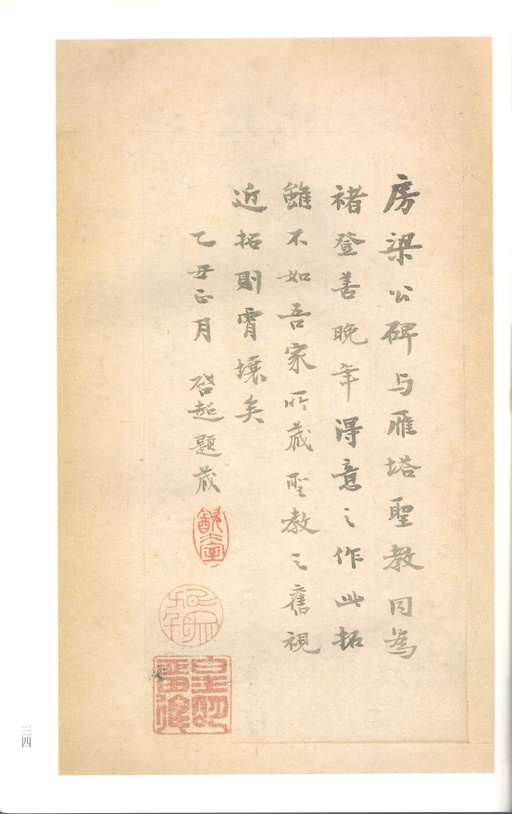 房梁公碑与雁塔聖教同為
褚登善晚年得意之作此拓
雖不如吾家所藏聖教之舊視
近拓則霄壤矣
乙丑正月 啓超題藏
三四